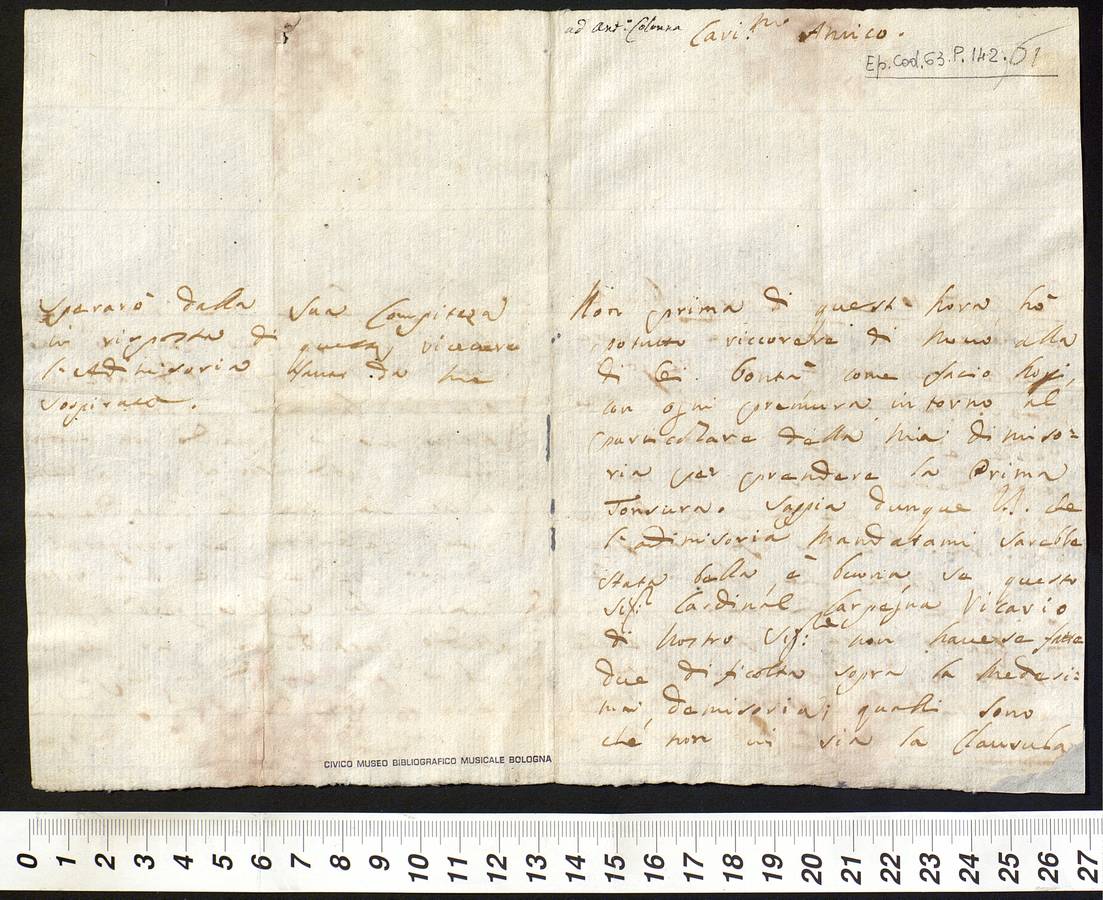 ad Ant.o Colonna
Cari.mo Amico.
Ep. Cod. 63. P. 142. 61
Non prima di quest hora, hò
potuto riccorere di novo alla
di lei bontà come facio hogi,
con ogni premura intorno al
particolare della mia dimiso=
ria per prendere la Prima
Tonsura. Sappia dunque V.S. che
la dimisoria mandatami sarebbe
stata bella, è buona, se questo
Sig.r Cardinal Carpegna Vicario
di Nostro Sig.re non havese fatte
due dificoltà sopra la medesi=
ma, demisoria; quali sono
che non vi sia la Clausula
Sperarò dalla sua Compiteza
in risposta di questa, ricevere
la dimisoria da me
sospirata.
CIVICO MUSEO BIBLIOGRAFICO MUSICALE BOLOGNA
0 1 2 3 4 5 6 7 8 9 10 11 12 13 14 15 16 17 18 19 20 21 22 23 24 25 26 27